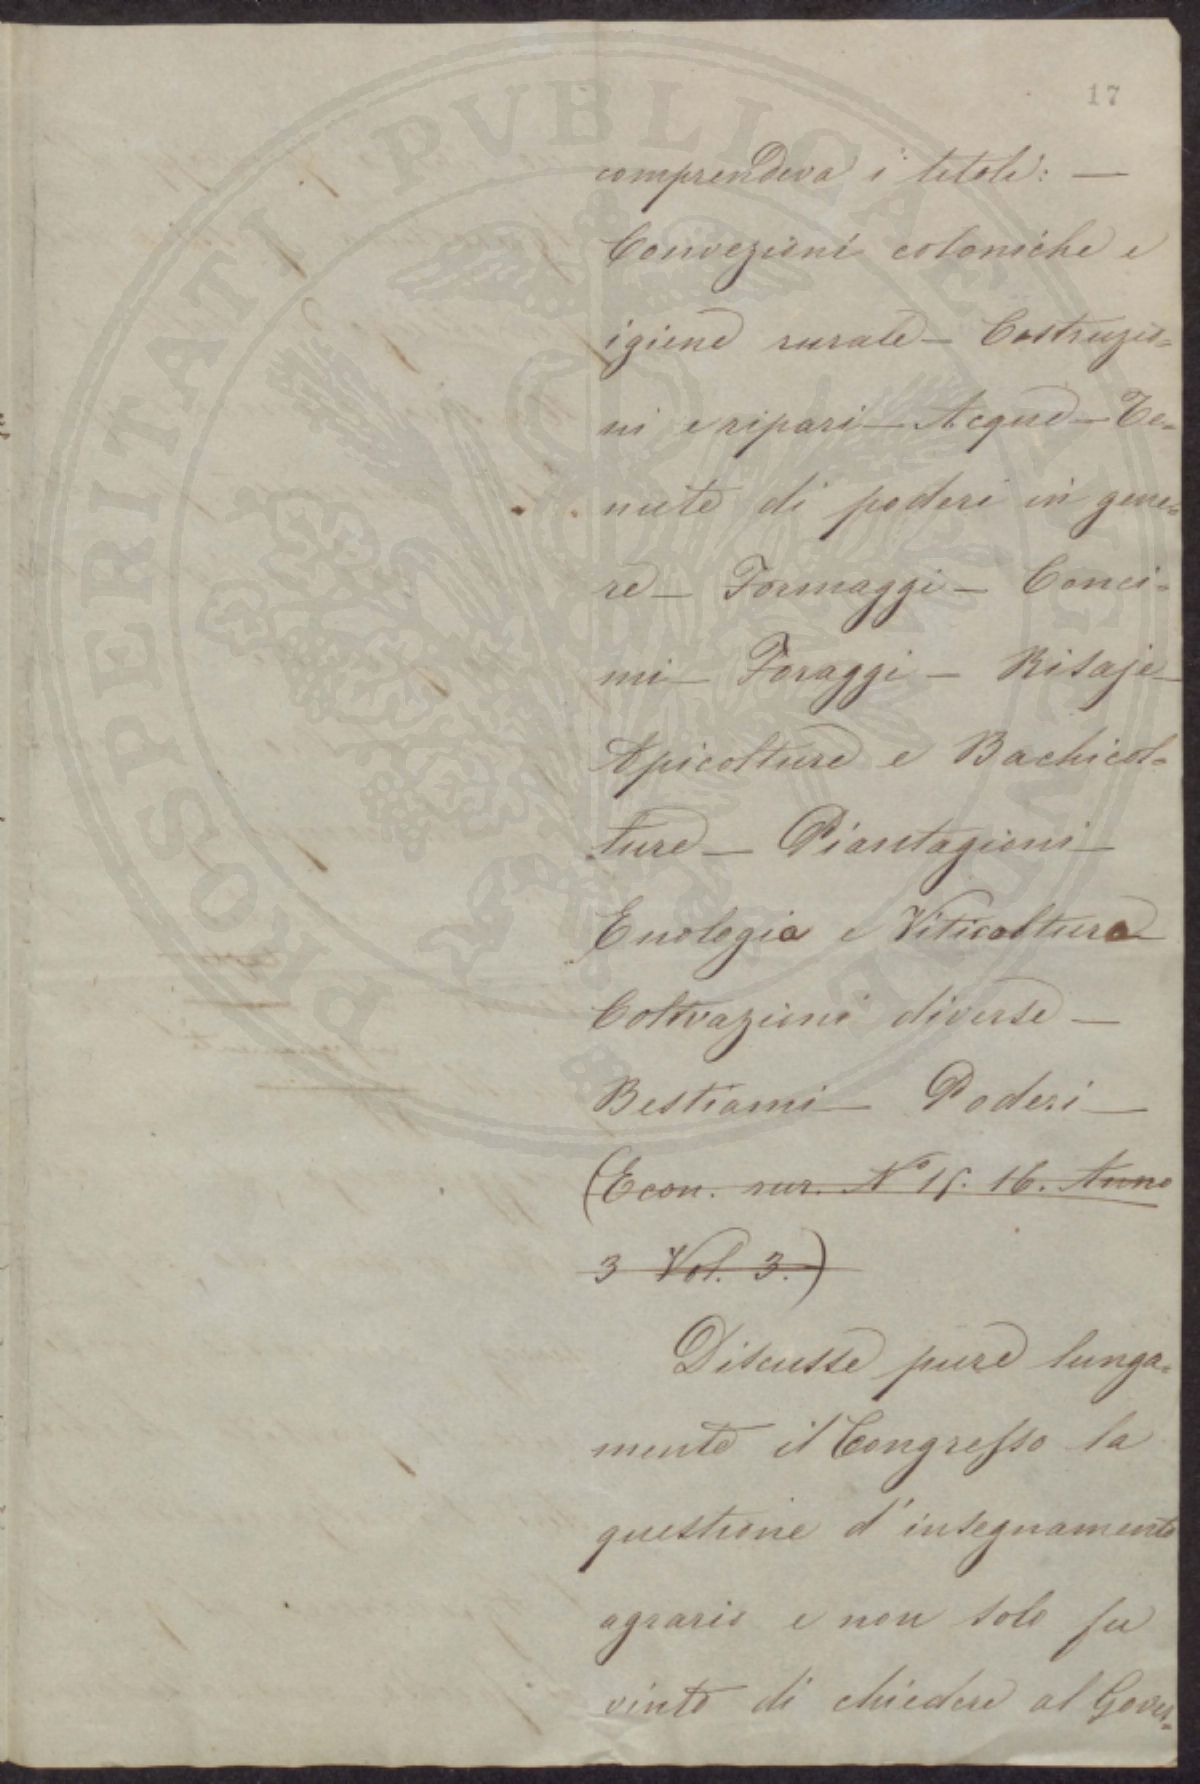 17
comprendeva i titoli: —
Convezioni coloniche e
igiene rurale — Costruzio=
ni e ripari — Acque — Te=
nute di poderi in gene=
re — Formaggi — Conci=
mi — Foraggi — Risaje —
Apicolture e Bachicol=
ture — Piantagioni —
Enologia e Viticoltura —
Coltivazioni diverse —
Bestiami — Poderi —
(Econ. rur. N° 15. 16. Anno
3 Vol. 3.)
Discusse pure lunga=
mente il Congresso la
questione d'insegnamento
agrario e non solo fu
vinto di chiedere al Gover=
PROSPERITATI PVBLICAE